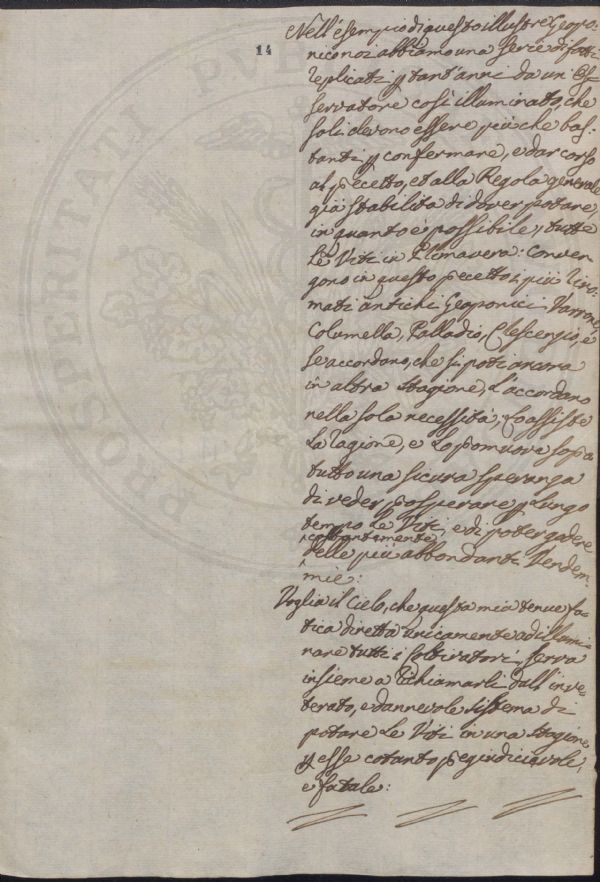 14
Nell'esempio di questo illustre Geopo-
nico noi abbiamo una serie di fatti
replicati p tant'anni da un Os-
servatore così illuminato, che
soli devono essere più che bas-
tanti p confermare, e dar corso
al pcetto, et alla Regola generale
già stabilita di dover potare,
in quanto è possibile, tutte
le Viti in Primavera: Conven-
gono in questo pcetto i più rino-
mati antichi Geoponici Varrone,
Columella, Palladio, Crescenzio, e
se accordano, che si poti ancora
in altra stagione, l'accordano
nella sola necessità, Lo assiste
la ragione, e lo promuove sopra
tutto una sicura speranza
di veder prosperare p lungo
tempo le Viti, e di poter godere
costantemente
delle più abbondanti Vendem-
mie:
Voglia il Cielo, che questa mia tenue fa-
tica diretta unicamente ad illumi-
nare tutti i Coltivatori, serva
insieme a richiamarli dall'inve-
terato, e dannevole sistema di
potare le Viti in una stagione
p esse cotanto pgiudicievole,
e fatale:
PROSPERITATI PUB